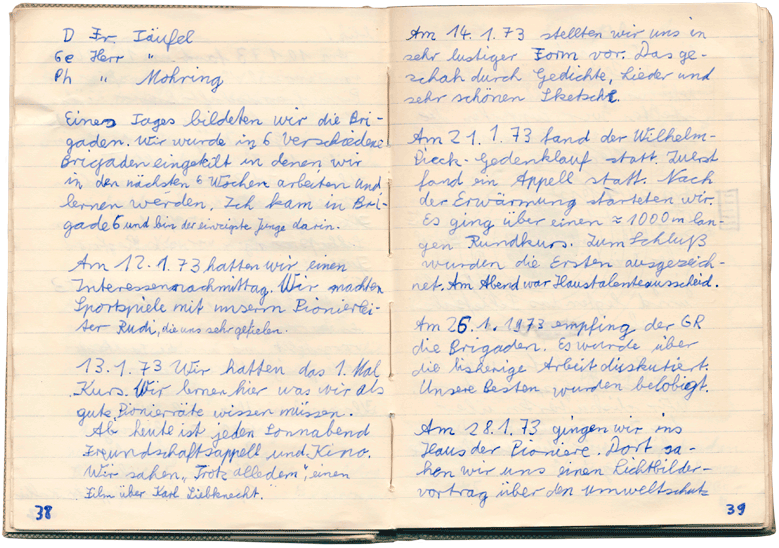 D Fr. Täufel
Ge Herr "
Ph " Mohring
Eines Tages bildeten wir die Bri-
gaden. Wir wurde in 6 verschiedene
Brigaden eingeteilt in denen wir
in den nächsten 6 Wochen arbeiten und
lernen werden. Ich kam in Bri-
gade 6 und bin der einzigste Junge darin.
Am 12.1.73 hatten wir einen
Interessennachmittag. Wir machten
Sportspiele mit unserm Pionierlei-
ter Rudi, die uns sehr gefielen.
13.1.73 Wir hatten das 1. Mal
Kurs. Wir lernen hier was wir als
gute Pionierräte wissen müssen.
Ab heute ist jeden Sonnabend
Freundschaftsappell und Kino.
Wir sahen „Trotz alledem", einen
Film über Karl Liebknecht.
38
Am 14.1.73 stellten wir uns in
sehr lustiger Form vor. Das ge-
schah durch Gedichte, Lieder und
sehr schönen Sketsche.
Am 21.1.73 fand der Wilhelm-
Pieck-Gedenklauf statt. Zuerst
fand ein Appell statt. Nach
der Erwärmung starteten wir.
Es ging über einen ≈ 1000 m lan-
gen Rundkurs. Zum Schluß
wurden die Ersten ausgezeich-
net. Am Abend war Haustalenteausscheid.
Am 26.1.1973 empfing der GR
die Brigaden. Es wurde über
die bisherige Arbeit diskutiert.
Unsere Besten wurden belobigt.
Am 28.1.73 gingen wir ins
Haus der Pioniere. Dort sa-
hen wir uns einen Lichtbilder-
vortrag über den Umweltschutz
39